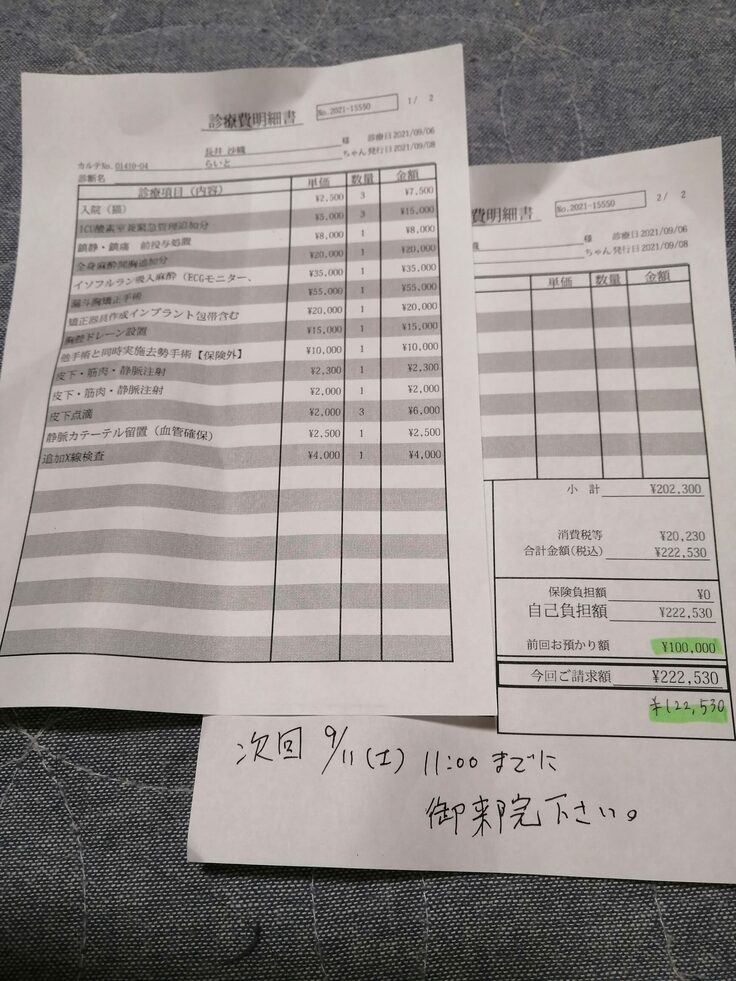 診療費明細書
No.2021-15550
1/ 2
長井 沙織 様 診療日2021/09/06
カルテNo. 01410-04 らいと ちゃん 発行日2021/09/08
診断名
診療項目（内容） 単価 数量 金額
入院（猫） ¥2,500 3 ¥7,500
ICU酸素室兼緊急管理追加分 ¥5,000 3 ¥15,000
鎮静・鎮痛 前投与処置 ¥8,000 1 ¥8,000
全身麻酔開胸追加分 ¥20,000 1 ¥20,000
イソフルラン吸入麻酔（ECGモニター、 ¥35,000 1 ¥35,000
漏斗胸矯正手術 ¥55,000 1 ¥55,000
矯正器具作成インプラント包帯含む ¥20,000 1 ¥20,000
胸腔ドレーン設置 ¥15,000 1 ¥15,000
他手術と同時実施去勢手術【保険外】 ¥10,000 1 ¥10,000
皮下・筋肉・静脈注射 ¥2,300 1 ¥2,300
皮下・筋肉・静脈注射 ¥2,000 1 ¥2,000
皮下点滴 ¥2,000 3 ¥6,000
静脈カテーテル留置（血管確保） ¥2,500 1 ¥2,500
追加X線検査 ¥4,000 1 ¥4,000
費明細書
No.2021-15550
2/ 2
様 診療日2021/09/06
ちゃん 発行日2021/09/08
単価 数量 金額
小 計 ¥202,300
消費税等 ¥20,230
合計金額(税込) ¥222,530
保険負担額 ¥0
自己負担額 ¥222,530
前回お預かり額 ¥100,000
今回ご請求額 ¥222,530
¥122,530
次回 9/11(土) 11:00までに
御来院下さい。